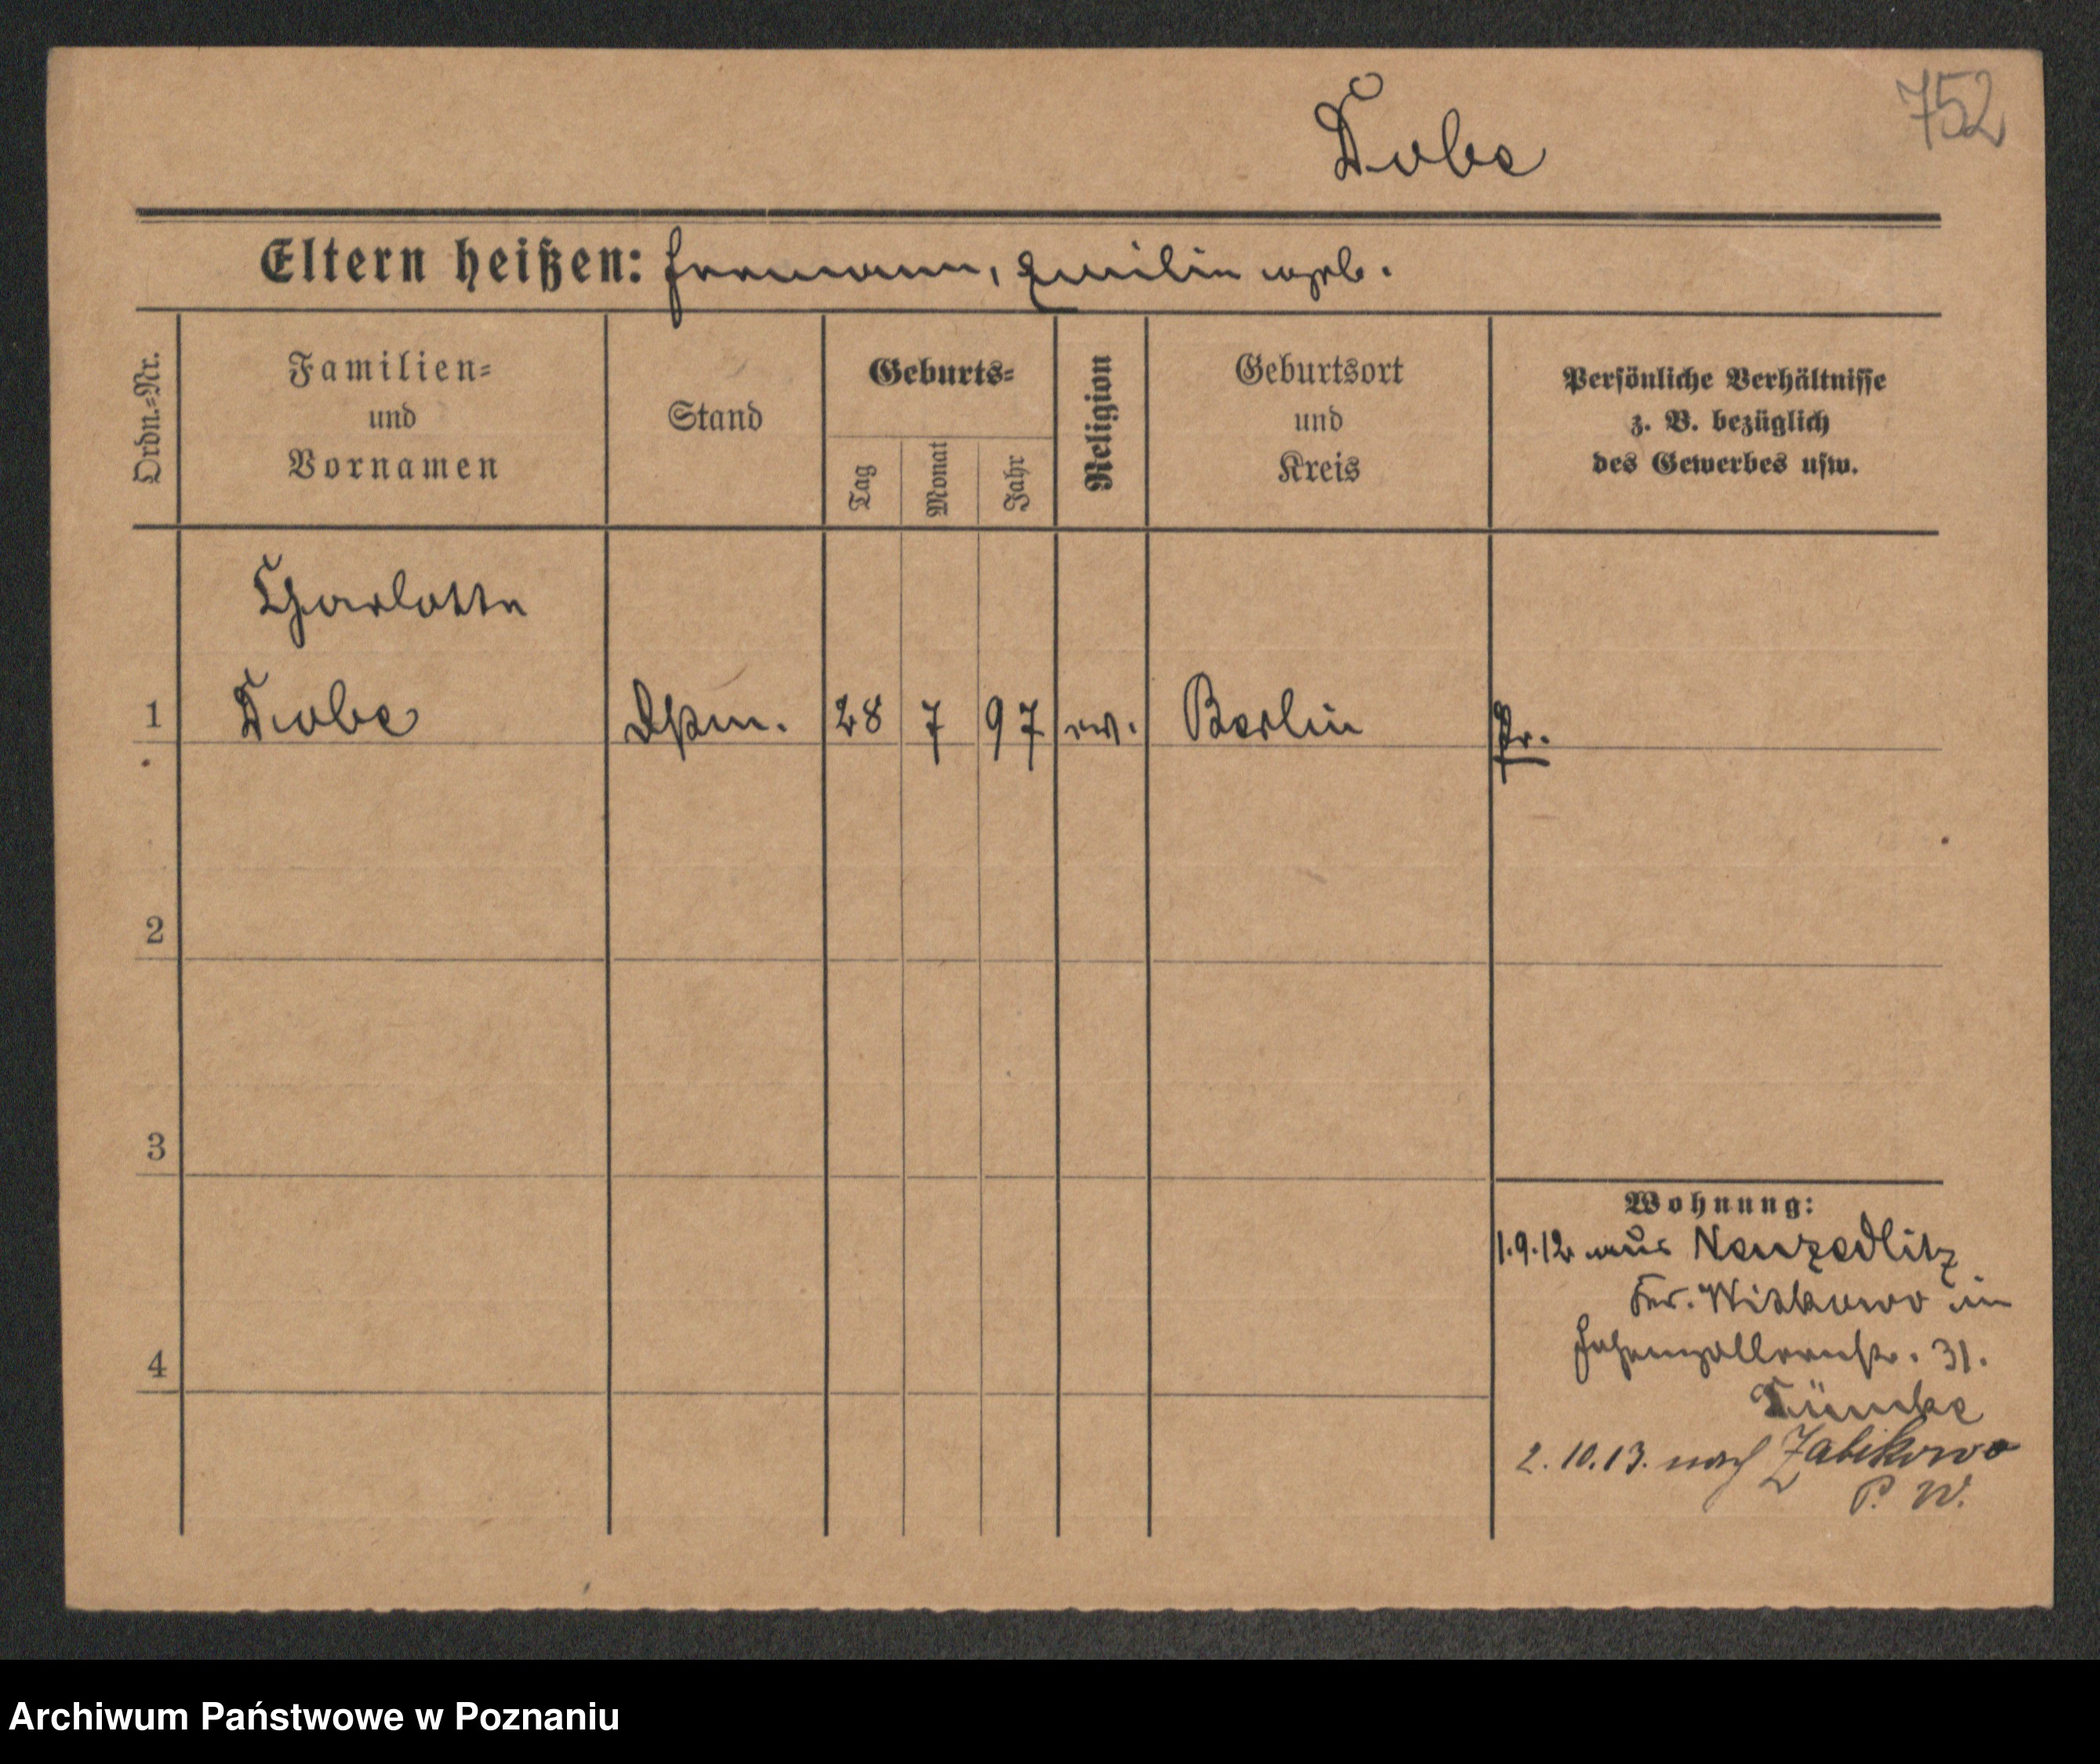 752
Tobe
Eltern heißen: Hermann, Emilie geb.
Ordn.-Nr.
Familien-
und
Vornamen
Stand
Geburts-
Tag
Monat
Jahr
Religion
Geburtsort
und
Kreis
Persönliche Verhältnisse
z. B. bezüglich
des Gewerbes usw.
Charlotte
1 Tobe 28 7 97 ev. Berlin Pr.
2
3
4
Wohnung:
1.9.12 aus Neuzedlitz
Kr. Witkowo in
Hohenzollernstr. 31.
2.10.13. nach Zabikowo
P. W.
Archiwum Państwowe w Poznaniu